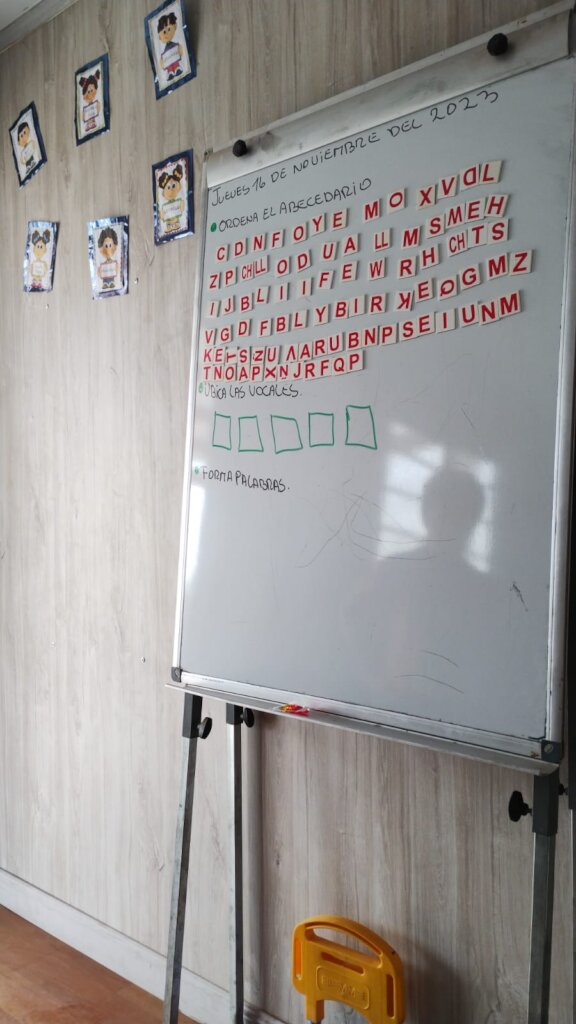 JUEVES 16 DE NOVIEMBRE DEL 2023
ORDENA EL ABECEDARIO
C D N F O Y E M O X V D L
Z P CH LL O D U A LL M S M E H
I J B L I I F E W R H CH T S
V G D F B L Y B I R K E O G M Z
K E T S Z U A A R U B N P S E I U N M
T N O A P X N J R F Q P
UBICA LAS VOCALES.
FORMA PALABRAS.